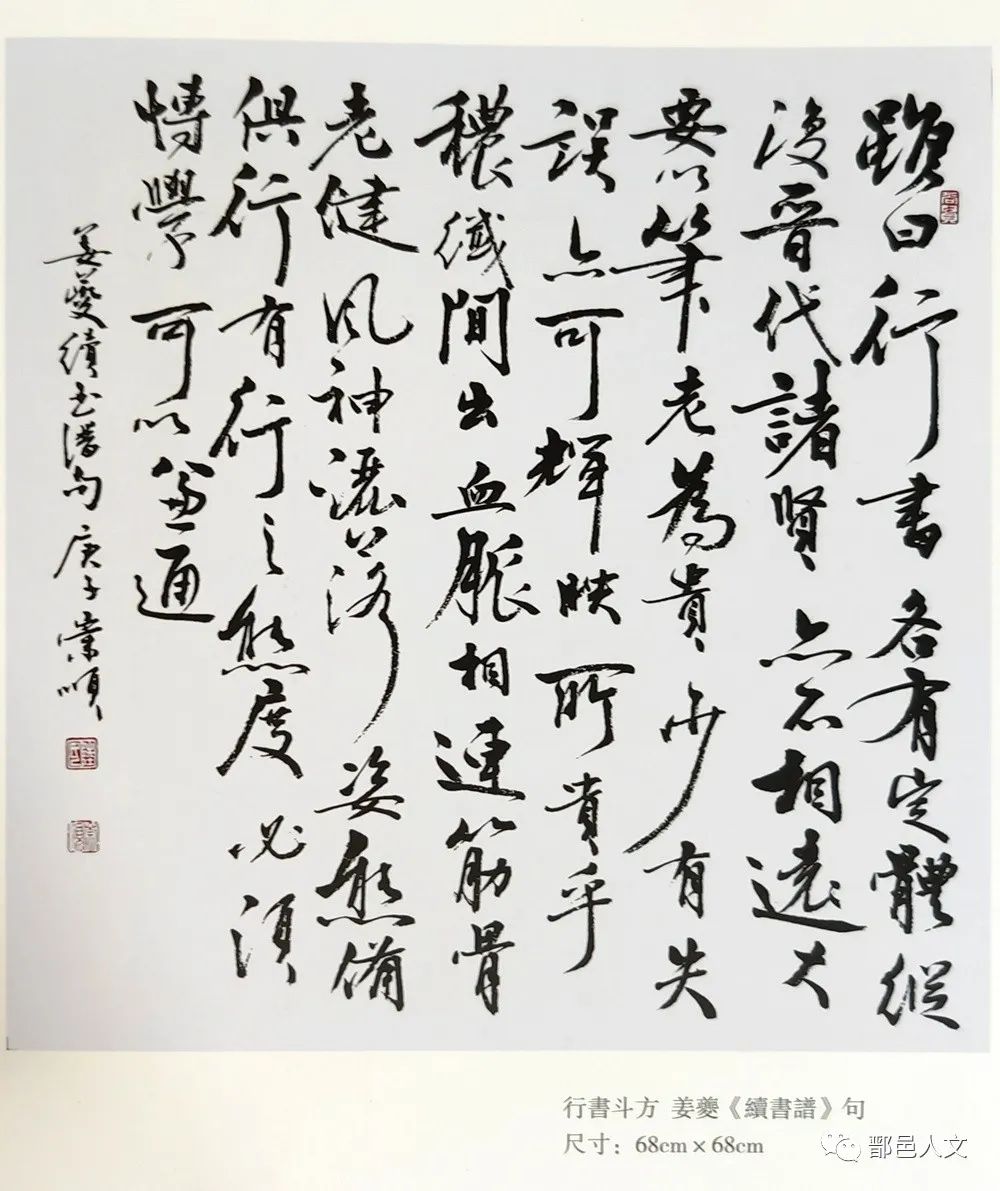 雖曰行書各有定體縱
復晉代諸賢亦不相遠大
要以筆老為貴少有失
誤亦可輝映所貴乎
穠纖間出血脈相連筋骨
老健風神灑落姿態備
俱行有行之態度必須
博學可以兼通
姜夔續書譜句庚子順
行書斗方 姜夔《續書譜》句
尺寸：68cm×68cm
鄑邑人文